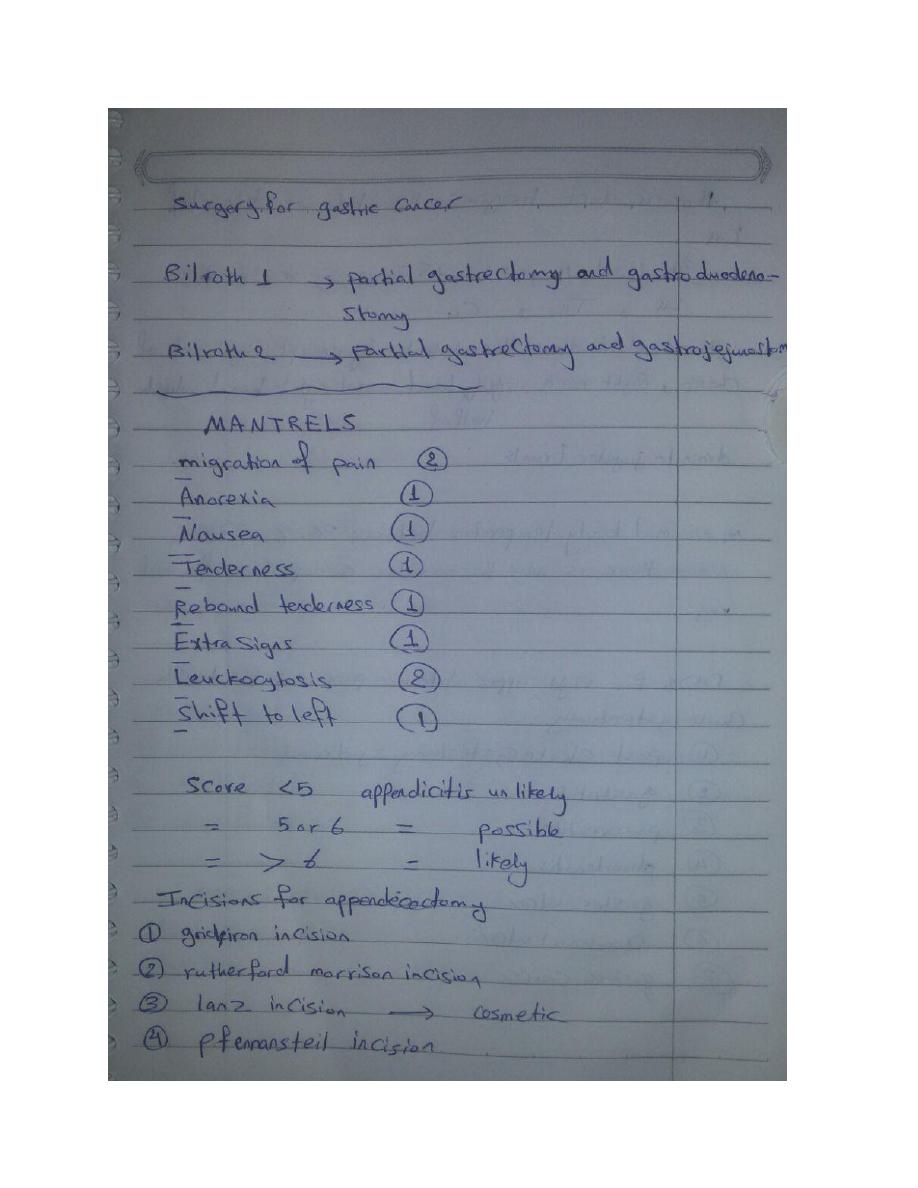 Surgery for gastric Cancer
Bilroth 1 → partial gastrectomy and gastroduodeno-
stomy
Bilroth 2 → Partial gastrectomy and gastrojejunostom
MANTRELS
migration of pain ②
Anorexia ①
Nausea ①
Tenderness ①
Rebound tenderness ①
Extra signs ①
Leuckocytosis ②
Shift to left ①
Score <5 appendicitis unlikely
= 5 or 6 = possible
= > 6 = likely
Incisions for appendecectomy
① gridiron incision
② rutherford morrison incision
③ lanz incision → cosmetic
④ Pfennansteil incision